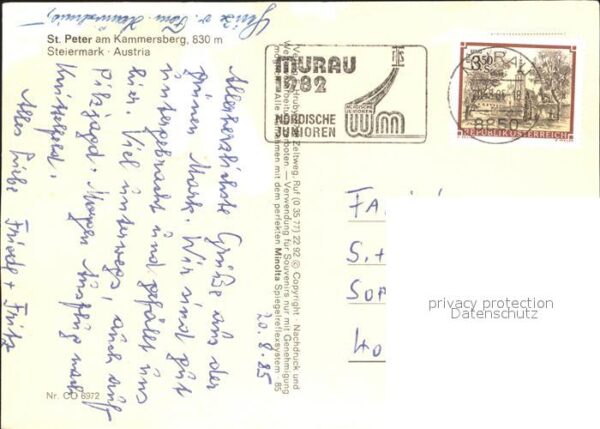 Grüße v. Fam.
St. Peter am Kammersberg, 830 m
Steiermark · Austria
Allerherzlichste Grüße aus der
grünen Mark. Wir sind gut
untergebracht und gefällt uns
hier. Viel unterwegs, auch auf
Pilzjagd. Morgen Ausflug nach
Knittelfeld.
Alles Liebe Friedl + Fritz
20.8.85
Nr. CO 8972
Zeltweg, Ruf (0 35 77) 22 92 © Copyright · Nachdruck und
verboten — Verwendung für Souvenirs nur mit Genehmigung
Alle Aufnahmen mit dem perfekten Minolta Spiegelreflexsystem 85
MURAU
1982
NORDISCHE
JUNIOREN
WM
3.50
MURAU
8850
REPUBLIK ÖSTERREICH
FA
S.+
SOP
40
privacy protection
Datenschutz